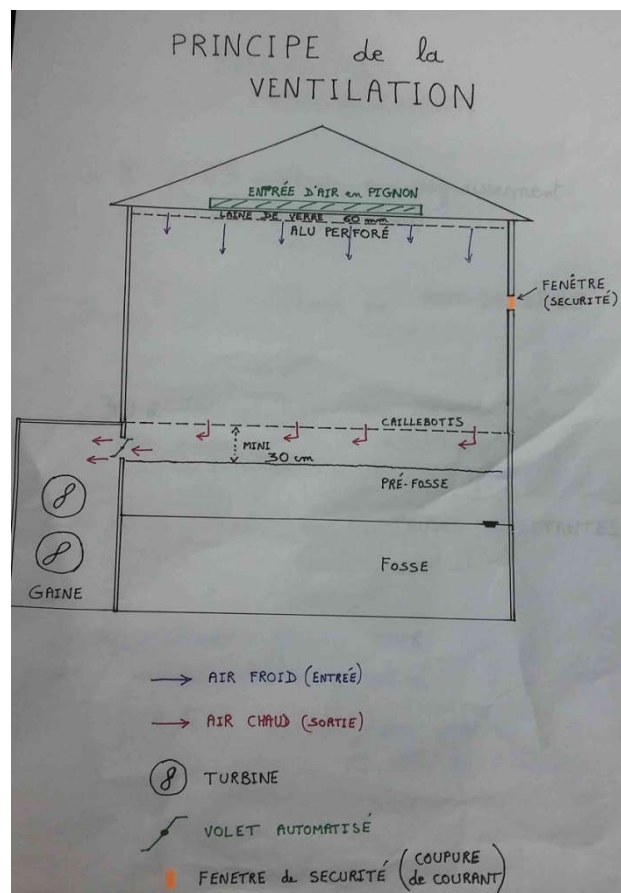 PRINCIPE de la
VENTILATION
ENTRÉE D'AIR en PIGNON
LAINE DE VERRE 60 mm
ALU PERFORÉ
FENÊTRE
(SECURITÉ)
CAILLEBOTIS
MINI
30 cm
PRÉ-FOSSE
FOSSE
GAINE
AIR FROID (ENTRÉE)
AIR CHAUD (SORTIE)
TURBINE
VOLET AUTOMATISÉ
FENETRE de SECURITÉ (COUPURE
de COURANT)